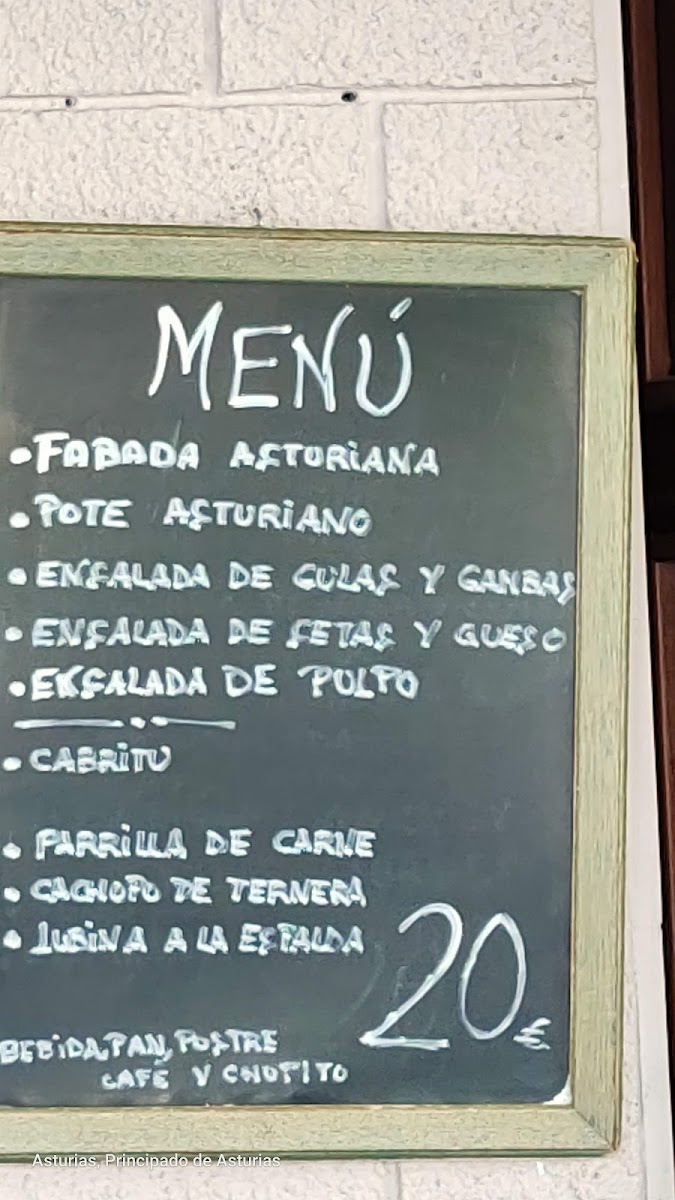 MENÚ
• FABADA ASTURIANA
• POTE ASTURIANO
• ENSALADA DE GULAS Y GANBAS
• ENSALADA DE SETAS Y QUESO
• ENSALADA DE PULPO
• CABRITU
• PARRILLA DE CARNE
• CACHOPO DE TERNERA
• LUBINA A LA ESPALDA
20€
BEBIDA, PAN, POSTRE
CAFÉ Y CHUPITO
Asturias, Principado de Asturias